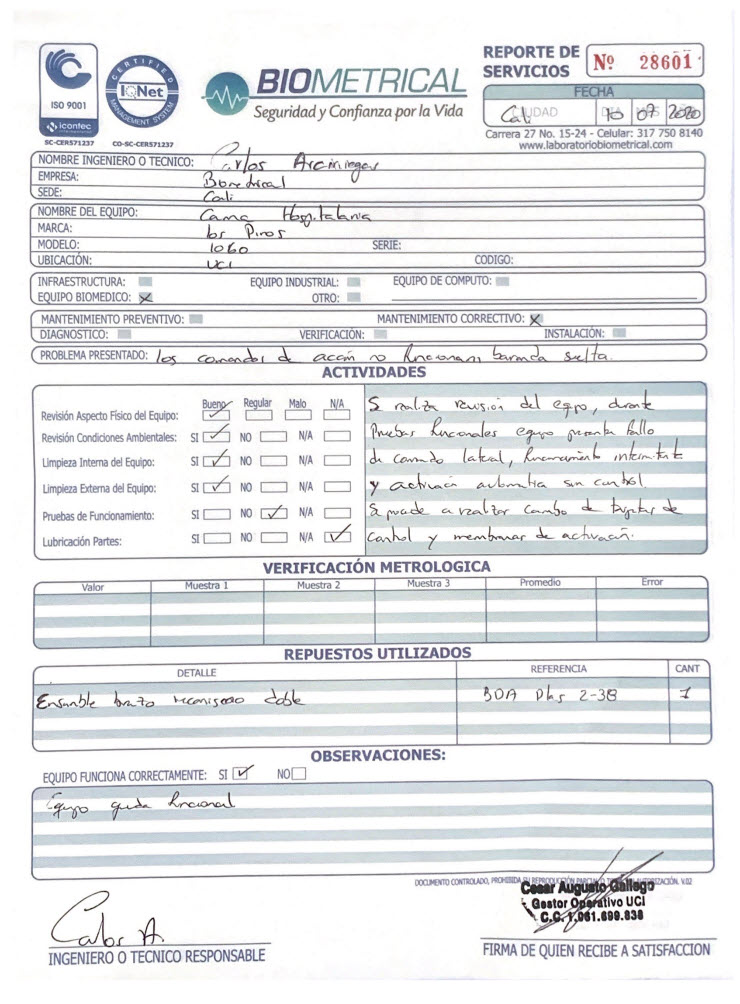 REPORTE DE SERVICIOS
Nº 28601
ISO 9001
icontec
SC-CER571237
CERTIFIED
IQNet
MANAGEMENT SYSTEM
CO-SC-CER571237
BIOMETRICAL
Seguridad y Confianza por la Vida
FECHA
CIUDAD Cali 10 07 2020
Carrera 27 No. 15-24 - Celular: 317 750 8140
www.laboratoriobiometrical.com
NOMBRE INGENIERO O TECNICO: Carlos Arciniegas
EMPRESA: Biometrical
SEDE: Cali
NOMBRE DEL EQUIPO: Cama Hospitalaria
MARCA: los Pinos
MODELO: 1060 SERIE:
UBICACIÓN: UCI CODIGO:
INFRAESTRUCTURA: EQUIPO INDUSTRIAL: EQUIPO DE COMPUTO:
EQUIPO BIOMEDICO: X OTRO:
MANTENIMIENTO PREVENTIVO: MANTENIMIENTO CORRECTIVO: X
DIAGNOSTICO: VERIFICACIÓN: INSTALACIÓN:
PROBLEMA PRESENTADO: los comandos de acción no funcionan, baranda suelta.
ACTIVIDADES
Bueno Regular Malo N/A
Revisión Aspecto Físico del Equipo: ✓
Revisión Condiciones Ambientales: SI ✓ NO N/A
Limpieza Interna del Equipo: SI ✓ NO N/A
Limpieza Externa del Equipo: SI ✓ NO N/A
Pruebas de Funcionamiento: SI NO ✓ N/A
Lubricación Partes: SI NO N/A ✓
Se realiza revisión del equipo, durante
Pruebas funcionales equipo presenta fallo
de comando lateral, funcionamiento intermitente
y activación automatica sin control.
Se procede a realizar cambio de tarjetas de
control y membranas de activación.
VERIFICACIÓN METROLOGICA
Valor Muestra 1 Muestra 2 Muestra 3 Promedio Error
REPUESTOS UTILIZADOS
DETALLE REFERENCIA CANT
Ensamble brazo mecanismo doble 2-38 1
OBSERVACIONES:
EQUIPO FUNCIONA CORRECTAMENTE: SI ✓ NO
Equipo queda funcional
DOCUMENTO CONTROLADO, PROHIBIDA SU REPRODUCCIÓN PARCIAL O TOTAL AUTORIZACIÓN. V.02
Cesar Augusto Gallego
Gestor Operativo UCI
C.C. 1.061.699.838
Carlos A.
INGENIERO O TECNICO RESPONSABLE
FIRMA DE QUIEN RECIBE A SATISFACCION